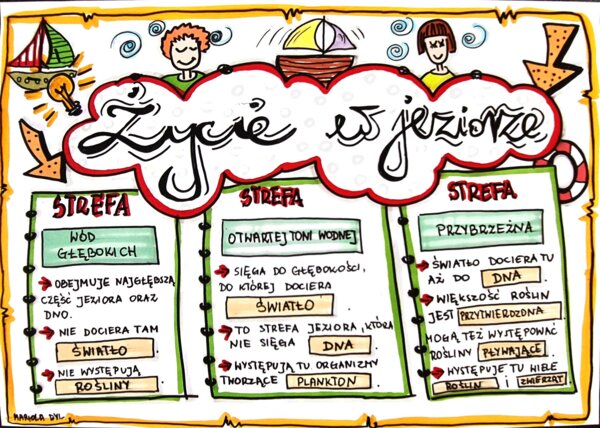 Życie w jeziorze
STREFA
WÓD
GŁĘBOKICH
OBEJMUJE NAJGŁĘBSZĄ
CZĘŚĆ JEZIORA ORAZ
DNO.
NIE DOCIERA TAM
ŚWIATŁO.
NIE WYSTĘPUJĄ
ROŚLINY.
STREFA
OTWARTEJ TONI WODNEJ
SIĘGA DO GŁĘBOKOŚCI,
DO KTÓREJ DOCIERA
ŚWIATŁO.
TO STREFA JEZIORA, KTÓRA
NIE SIĘGA DNA.
WYSTĘPUJĄ TU ORGANIZMY
TWORZĄCE PLANKTON.
STREFA
PRZYBRZEŻNA
ŚWIATŁO DOCIERA TU
AŻ DO DNA.
WIĘKSZOŚĆ ROŚLIN
JEST PRZYTWIERDZONA.
MOGĄ TEŻ WYSTĘPOWAĆ
ROŚLINY PŁYWAJĄCE.
WYSTĘPUJE TU WIELE
ROŚLIN i ZWIERZĄT.
MARIOLA DYL